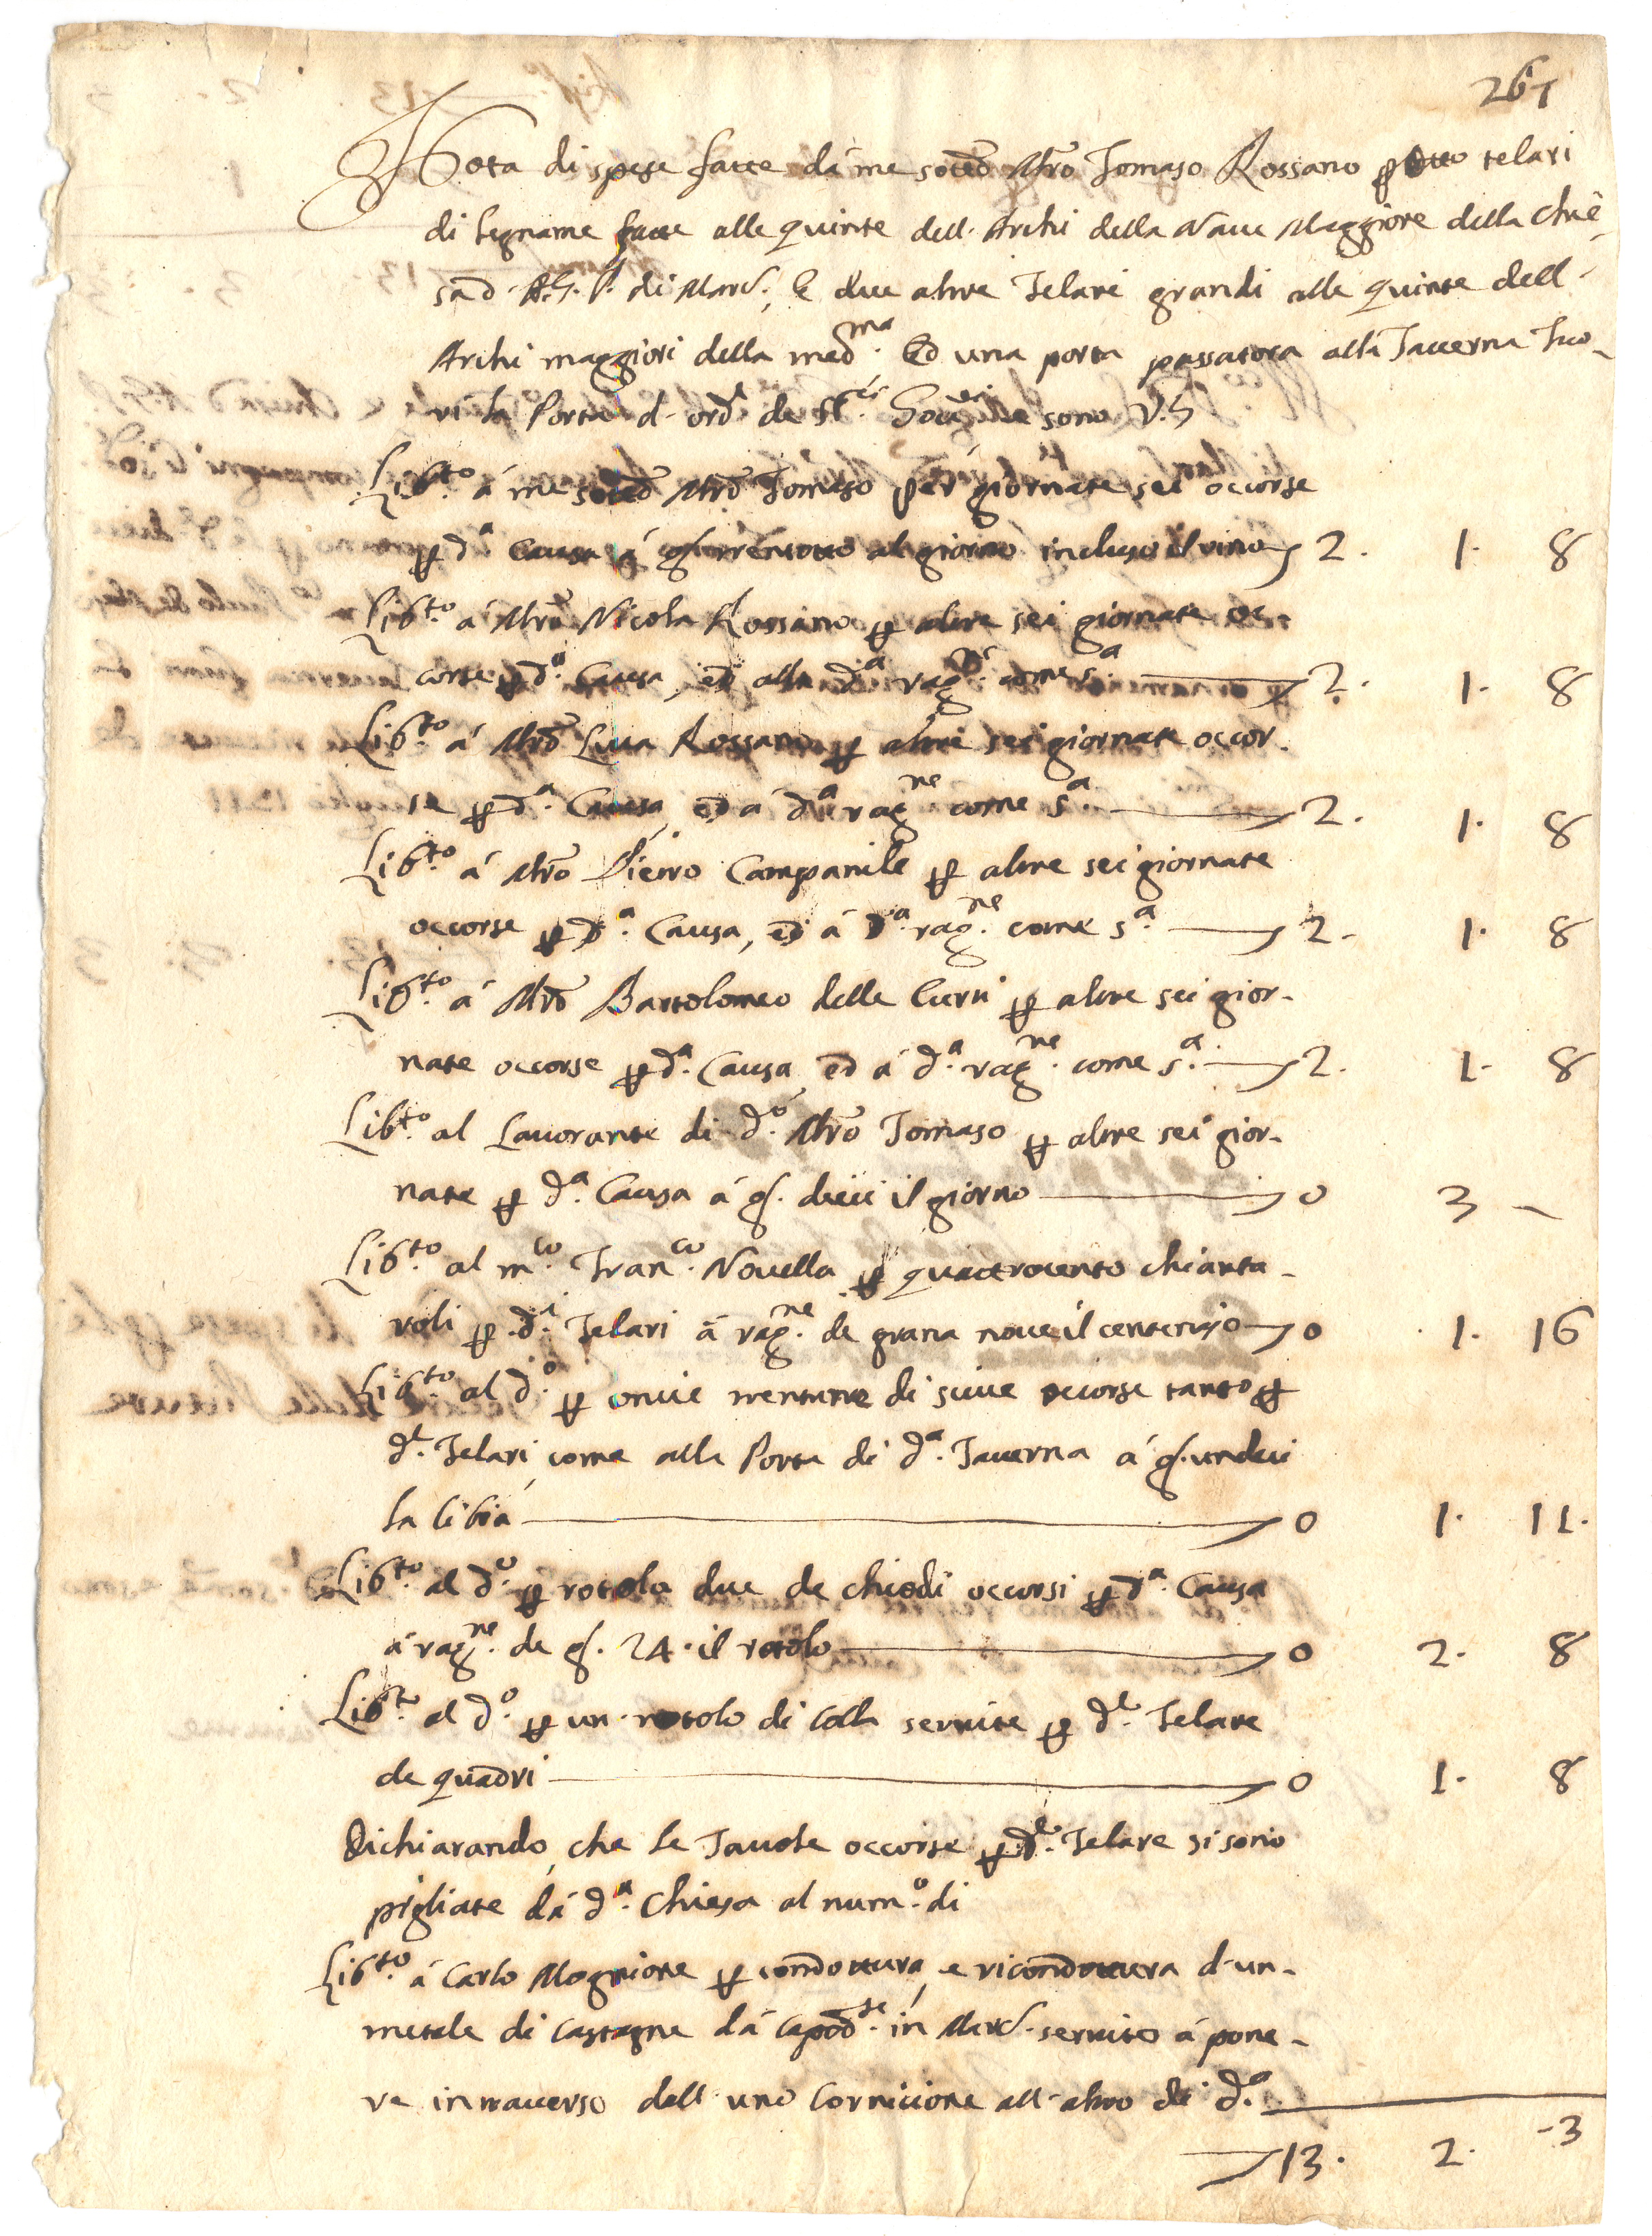 267
Nota di spese fatte dà me sottoo Mro Tomaso Rossano p otto telari
di legname fatte alle quinte dell. Archi della Naue Maggiore della Chie-
sa d. A.G.P. di Marc., & due altre Telari grandi alle quinte dell.
Archi maggiori della medma. Ed una porta passatora alla Tauerna Fuo-
ri la Porta d. ord. de SS.ri Gouri e sono V.S
Libto. à me sotto Mro Tomaso per giornate sei occorse
p da. Causa à g. trentotto al giorno incluso il vino 2. 1. 8
Libto. à Mro Nicola Rossano p altre sei giornate oc-
corse p da. Causa, ed alla da ragne. come sa. 2. 1. 8
Libto. à Mro Luca Rossano p altre sei giornate occor.
se p da. Causa, ed à da ragne come sa. 2. 1. 8
Libto. à Mro Pietro Campanile p altre sei giornate
occorse p da. Causa, ed à da. ragne. come sa. 2. 1. 8
Libto. à Mro Bartolomeo delle Curti p altre sei gior-
nate occorse p da. Causa ed à da. ragne. come sa. 2. 1. 8
Libto. al Lauorante di do. Mro Tomaso p altre sei gior-
nate p da. Causa à g. dieci il giorno 0 3 –
Libto. al mco. Franco. Nouella p quattrocento chianta-
roli p di. Telari à ragne. de grana noue il centenaro 0 1. 16
Libto. al do. p oncie trentatre di siuie occorse tanto p
dl. Telari come alla Porta di da. Tauerna à g. undeci
la libra 0 1. 11.
Libto. al do. p rotola due de chiodi occorsi p da. Causa
à ragne. de g. 24. il rotolo 0 2. 8
Libto. al do. p un rotolo di colla seruite p dl. Telare
de quadri 0 1. 8
Dichiarando, che le Tauole occorse p dl. Telare si sono
pigliate dà da. Chiesa al numo. di
Libto. à Carlo Mognione p condottura, e ricondottura d'un-
metale di castagne dà capodse. in Marc. seruito à pone-
re intrauerso dall'uno Cornicione all'altro di da.
13. 2. -3